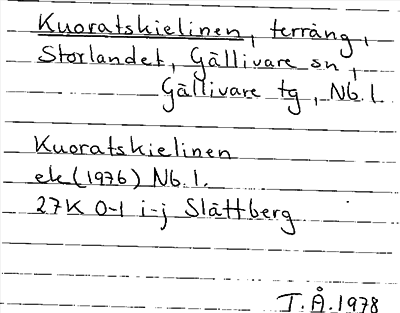 Kuoratskielinen, terräng,
Storlandet, Gällivare sn,
Gällivare tg, Nb.l.
Kuoratskielinen
ek (1976) Nb.l.
27K 0-1 i-j Slättberg
T.Å.1978